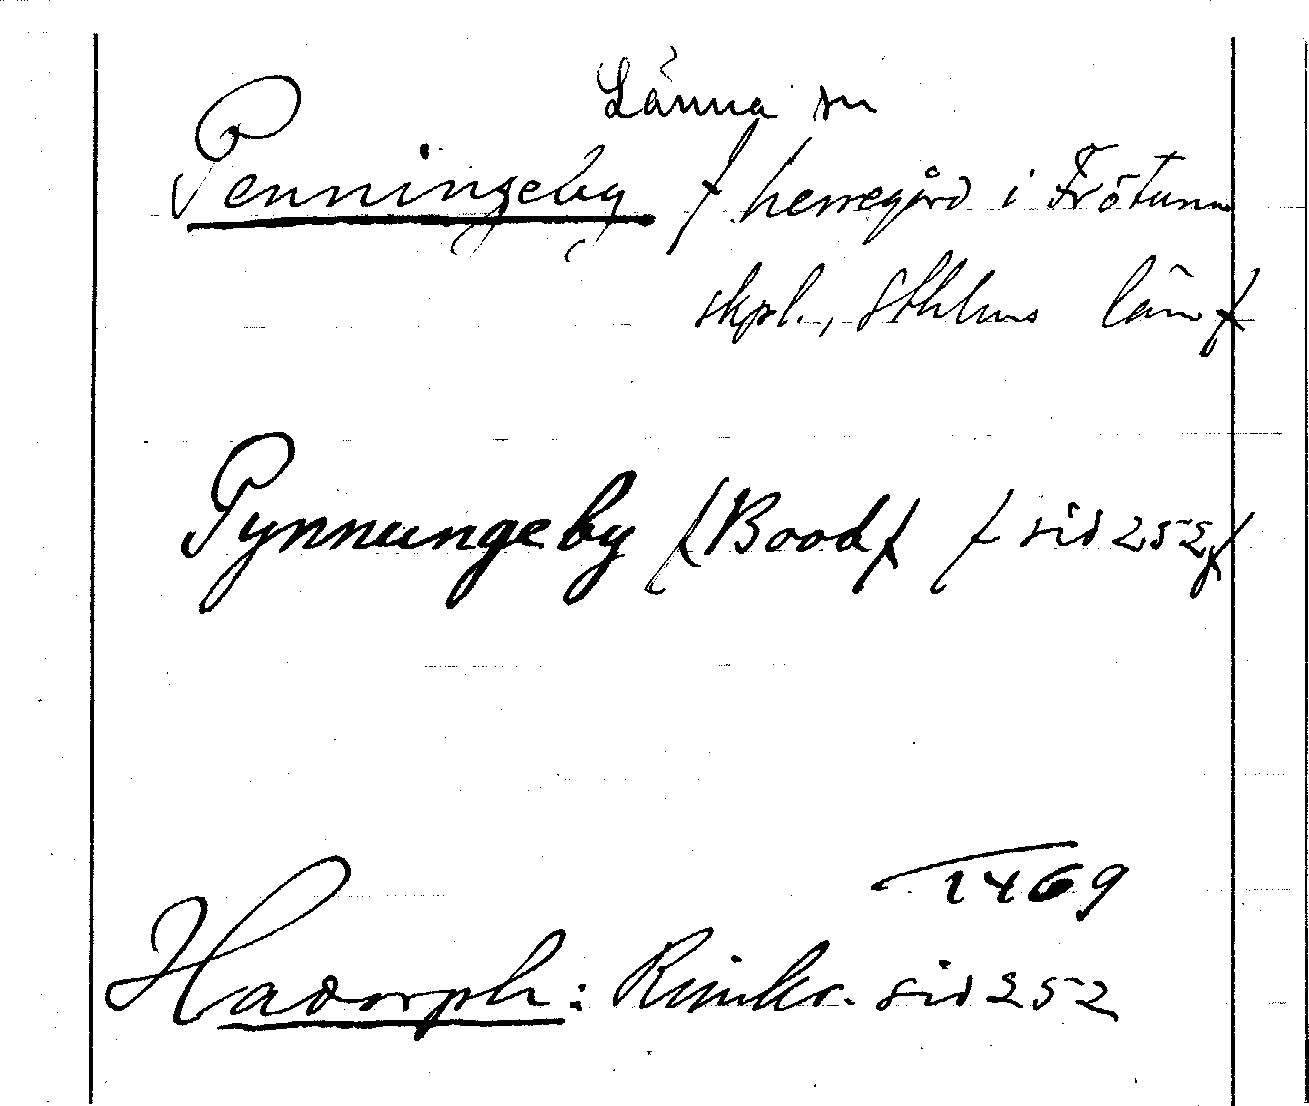 Länna sn
Penningeby / herregård i Frötuna
skpl., Sthlms län /
Pynnungeby / Bood / / sid 252 /
1469
Hadorph: Rimkr. sid 252